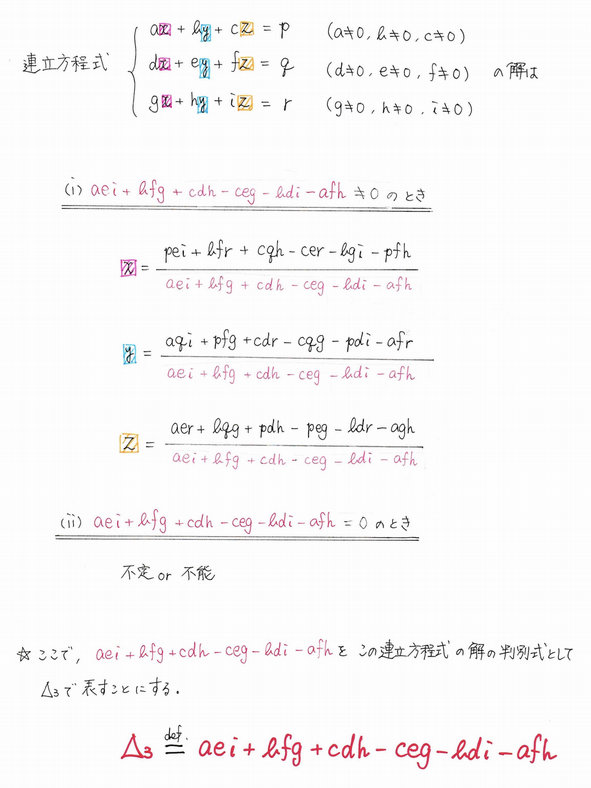 連立方程式
ax + by + cz = p (a≠0, b≠0, c≠0)
dx + ey + fz = q (d≠0, e≠0, f≠0) の解は
gx + hy + iz = r (g≠0, h≠0, i≠0)
(i) aei + bfg + cdh − ceg − bdi − afh ≠ 0 のとき
x = pei + bfr + cqh − cer − bqi − pfh
aei + bfg + cdh − ceg − bdi − afh
y = aqi + pfg + cdr − cqg − pdi − afr
aei + bfg + cdh − ceg − bdi − afh
z = aer + bqg + pdh − peg − bdr − aqh
aei + bfg + cdh − ceg − bdi − afh
(ii) aei + bfg + cdh − ceg − bdi − afh = 0 のとき
不定 or 不能
☆ ここで, aei + bfg + cdh − ceg − bdi − afh を この連立方程式の解の判別式として
Δ₃で表すことにする.
def.
Δ₃ = aei + bfg + cdh − ceg − bdi − afh